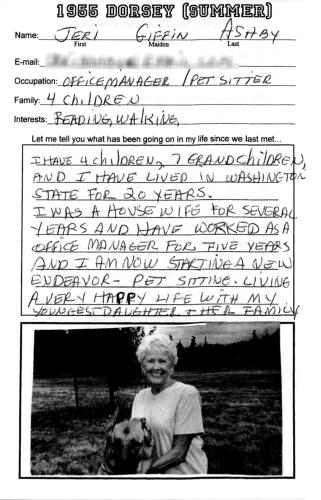 1955 DORSEY (SUMMER)
Name: JERI GIFFIN ASHBY
First Maiden Last
E-mail:
Occupation: OFFICE MANAGER / PET SITTER
Family: 4 CHILDREN
Interests: READING, WALKING,
Let me tell you what has been going on in my life since we last met...
I HAVE 4 CHILDREN, 7 GRANDCHILDREN,
AND I HAVE LIVED IN WASHINGTON
STATE FOR 20 YEARS.
I WAS A HOUSE WIFE FOR SEVERAL
YEARS AND HAVE WORKED AS A
OFFICE MANAGER FOR FIVE YEARS
AND I AM NOW STARTING A NEW
ENDEAVOR - PET SITTING. LIVING
A VERY HAPPY LIFE WITH MY
YOUNGEST DAUGHTER & HER FAMILY